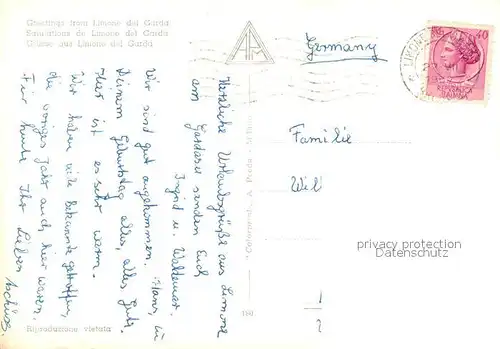 Greetings from Limone del Garda
Salutations de Limone del Garda
Grüsse aus Limone del Garda
Germany
40
Herzliche Urlaubsgrüße aus Limone
am Gardasee senden Euch
Ingrid u. Waldemar.
Wir sind gut angekommen.
Deinem Geburtstag alles, alles Gute.
Hier ist es sehr warm.
Wir haben viele Bekannte getroffen,
die voriges Jahr auch hier waren.
Für heute Ihr Lieben
tschüss.
Familie
Wil
privacy protection
Datenschutz
Riproduzione vietata